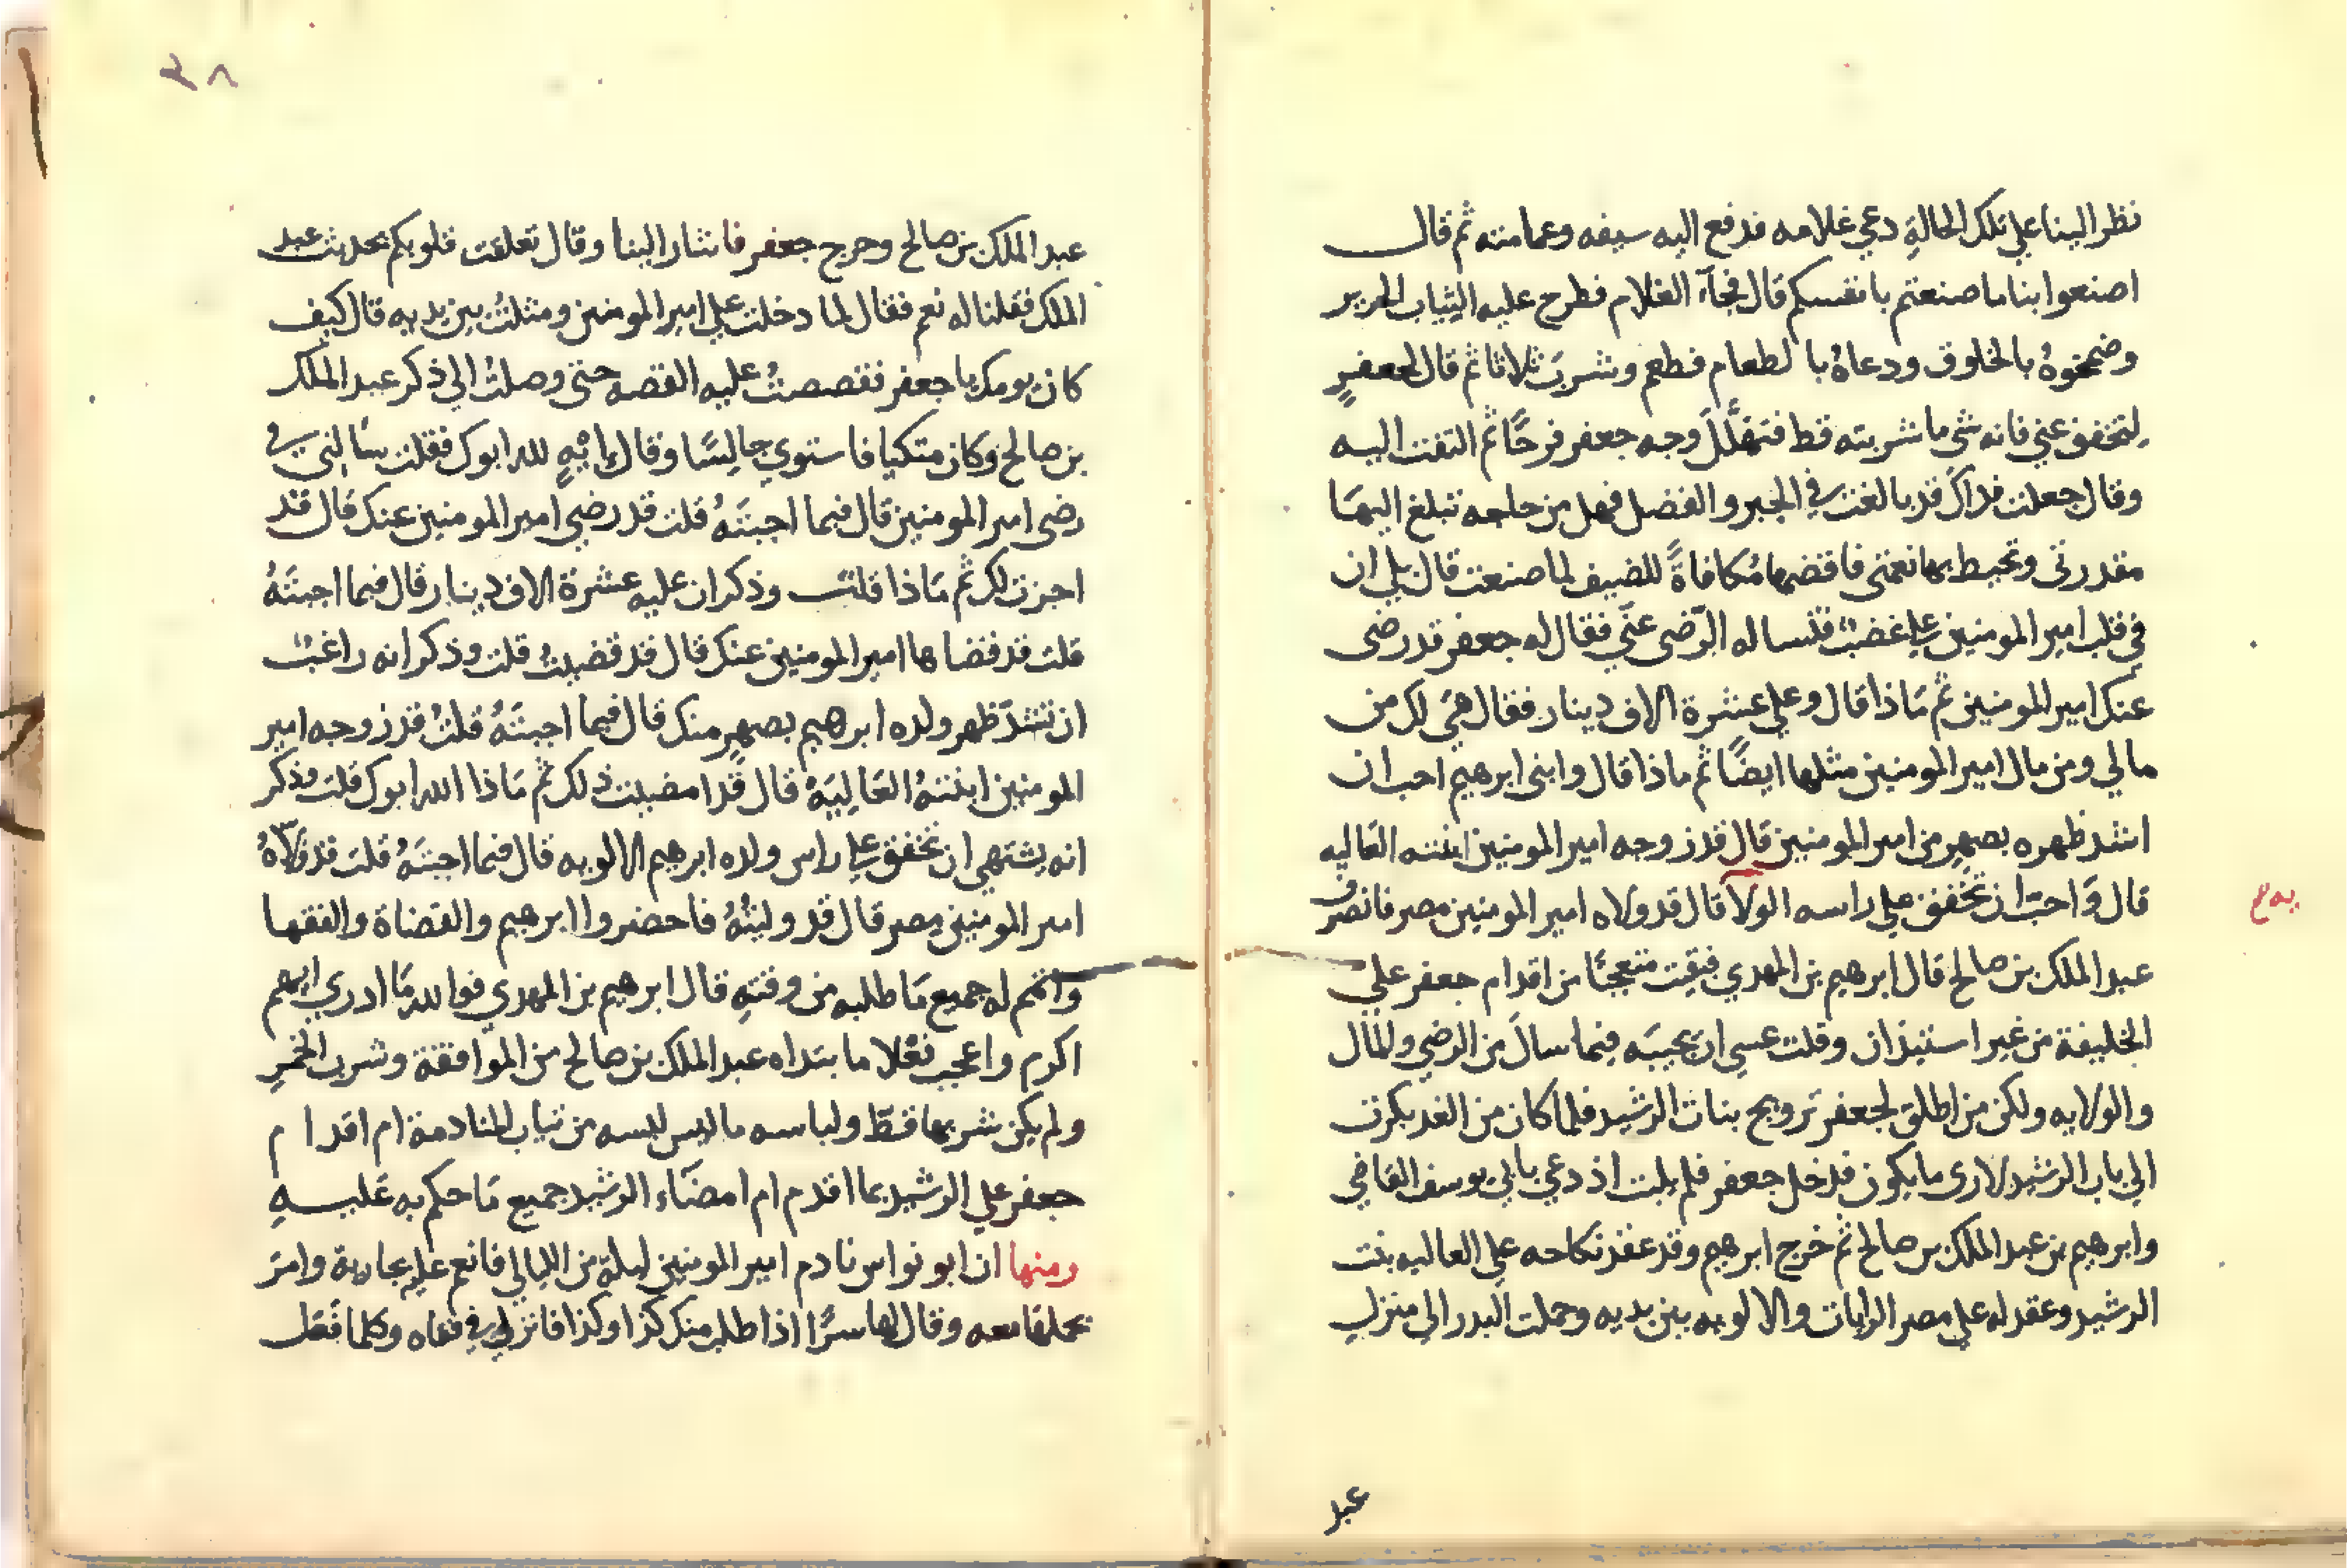 نظر الينا علي تلك الحالةِ دعي غلامه فدفع اليه سيفه وعمامته ثم قال
اصنعوا بنا ما صنعتم بانفسكم قال فجآء الغلام فطرح عليه الثياب الحرير
وضمخوهُ بالخلوق ودعاهُ بالطعام فطعم وشربَ ثلاثا ثم قال لجعفرٍ
لتخفف عني فانه شي ما شربته قط فتهلَّلَ وجه جعفر فرحًا ثم التفت اليه
وقال جعلت فداك قد بالغت في الخير والفضل فهل من حاجه تبلغ اليهَا
مقدرتي وتحيط بها نعمتي فاقضيها مُكافاةً للضيف لما صنعت قال بلي ان
في قلب امير المومنين علي غضبٌ فتساله الرّضي عنّي فقال له جعفر قد رضي
عنك امير المومنين ثم مَاذا قال وعلي عشرة الاف دينار فقال هيَ لك من
مالي ومن مال امير المومنين مثلها ايضًا ثم ماذا قال وابني ابرهيم احب ان
اشد ظهره بصهرٍ من امير المومنين قال قد زوجه امير المومنين ابنته العَاليه
قال وَاحبّ ان تخفق علي راسه الولا قال قد ولاه امير المومنين مصر فانصرف
يه ع
عبد الملك بن صالح قال ابرهيم بن المهدي فبقيت متعجبًا من اقدام جعفر علي
الخليفة من غير استيذان وقلت عسي ان يجيبَه فيما سالَ من الرضي والمال
والولايه ولكن من اطلق لجعفر تزويج بنات الرشيد فلما كان من الغد بكرت
الي باب الرشيد لاري ما يكون فدخل جعفر فلم يلبث اذ دعي بابي يوسف القاضي
وابرهيم بن عبد الملك بن صالح ثم خرج ابرهيم وقد عقد نكاحه علي العاليه بنت
الرشيد وعقد له علي مصر الرايات والالويه بين يديه وحملت البدر الي منزلِ
عبد
٣٨
عبد الملك بن صالح وخرج جعفر فاشار الينا وقال تعلقت قلوبكم بحديث عبد
الملك فقلنا له نعم فقال لما دخلت علي امير المومنين ومثلتُ بين يديه قال كيف
كان يومك يا جعفر فقصصتُ عليه القصه حتي وصلتُ الي ذكر عبد الملك
بن صالح وكان متكيا فاستوي جالِسًا وقال اِيْهٍ لله ابوك فقلت سَالني في
رضي امير المومنين قال فبما اجبتَهُ قلت قد رضي امير المومنين عنك قال قد
اجزت لك ثم مَاذا قلت وذكر ان عليه عشرة الاف دينار قال فبما اجبتَهُ
قلت قد قضاها امير المومنين عنك قال قد قضيتُ قلت وذكر انه راغبٌ
ان تشدّ ظهر ولده ابرهيم بصهرٍ منك قال فبما اجبتَهُ قلتُ قد زوجه امير
المومنين ابنتهُ العَالِيَةُ قال قد امضيت ذلك ثم مَاذا الله ابوك قلت وذكر
انه يشتهي ان تخفق علي راس ولده ابرهيم الالويه قال فبما اجبتَهُ قلت قد ولّاهُ
امير المومنين مصر قال قد وليتُهُ فاحضروا ابرهيم والقضاة والفقها
واتمم له جميع مَا طلبه من وقتهِ قال ابرهيم بن المهدي فوالله مَا ادري ايهم
اكرم واعجب نعْلا ما بتداه عبد الملك بن صالح من الموافقة وشرب الخمرِ
ولم يكن شربها قطّ ولباسه ما ليس لبسه من ثياب المنادمة ام اقدام
جعفر علي الرشيد بما اقدم ام امضَاء الرشيد جميع مَا حكم به عَليهِ
ومنها ان ابو نواس نادم امير المومنين ليلة من الليالي فانعم عليه بجارية وامرَ
بحملها معه وقال لها سرًّا اذا طلب منك كذا وكذا فانزلي في قفاه وكلما فَعَل